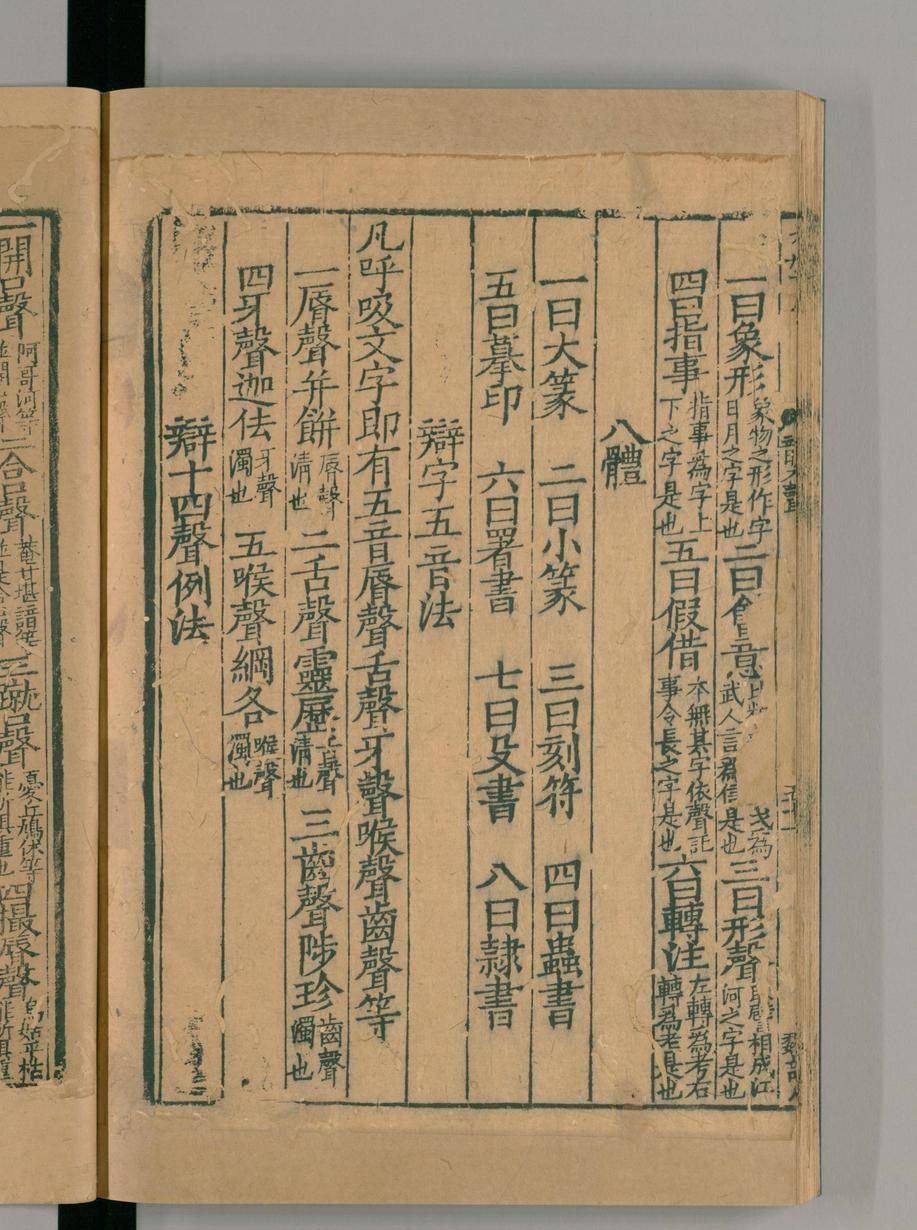 一曰象形象物之形作字日月之字是也二曰會意武人言爲信是也戈為三曰形聲聲相成江河之字是也
四曰指事指事爲字上下之字是也五曰假借本無其字依聲託事令長之字是也六曰轉注左轉爲考右轉爲老是也
八體
一曰大篆 二曰小篆 三曰刻符 四曰蟲書
五曰摹印 六曰署書 七曰殳書 八曰隷書
辯字五音法
凡呼吸文字即有五音脣聲舌聲牙聲喉聲齒聲等
一脣聲并餅脣聲清也 二舌聲靈歷舌聲清也 三齒聲陟珍齒聲濁也
四牙聲迦佉牙聲濁也 五喉聲綱各喉聲濁也
辯十四聲例法
一開口聲阿哥河等並開口聲二合口聲菴甘堪諳等三蹴口聲憂丘鳩休等四撮脣聲烏姑乎枯